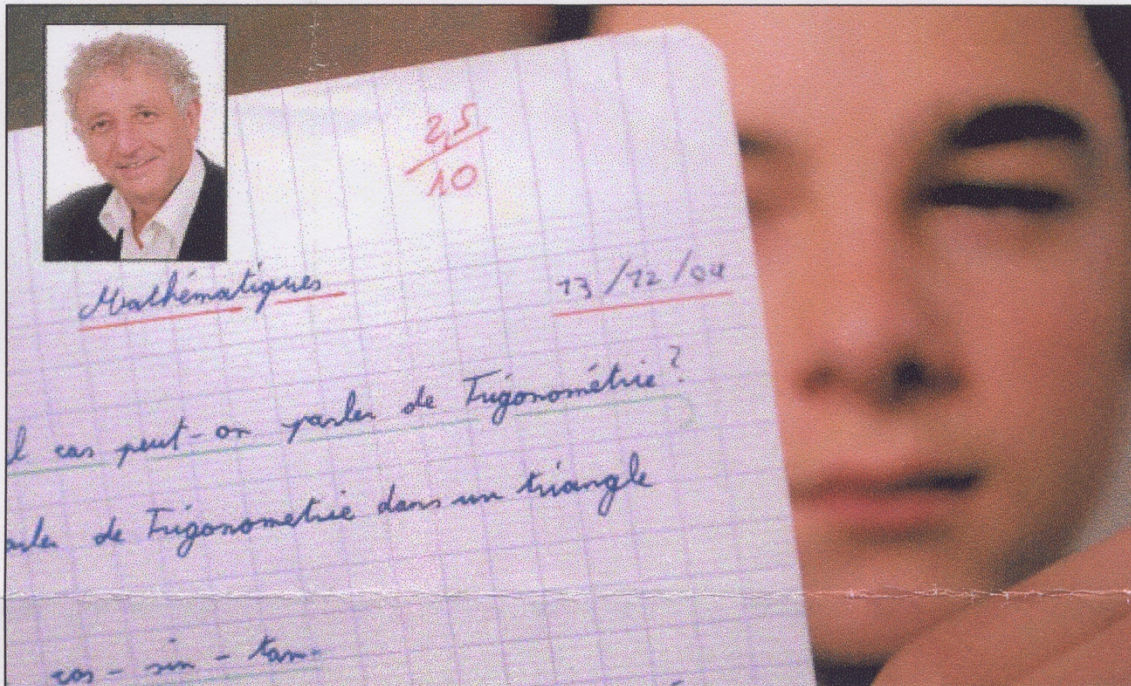 2,5
10
Mathématiques
13/12/04
l cas peut-on parler de Trigonométrie?
arler de Trigonometrie dans un triangle
cos - sin - tan.